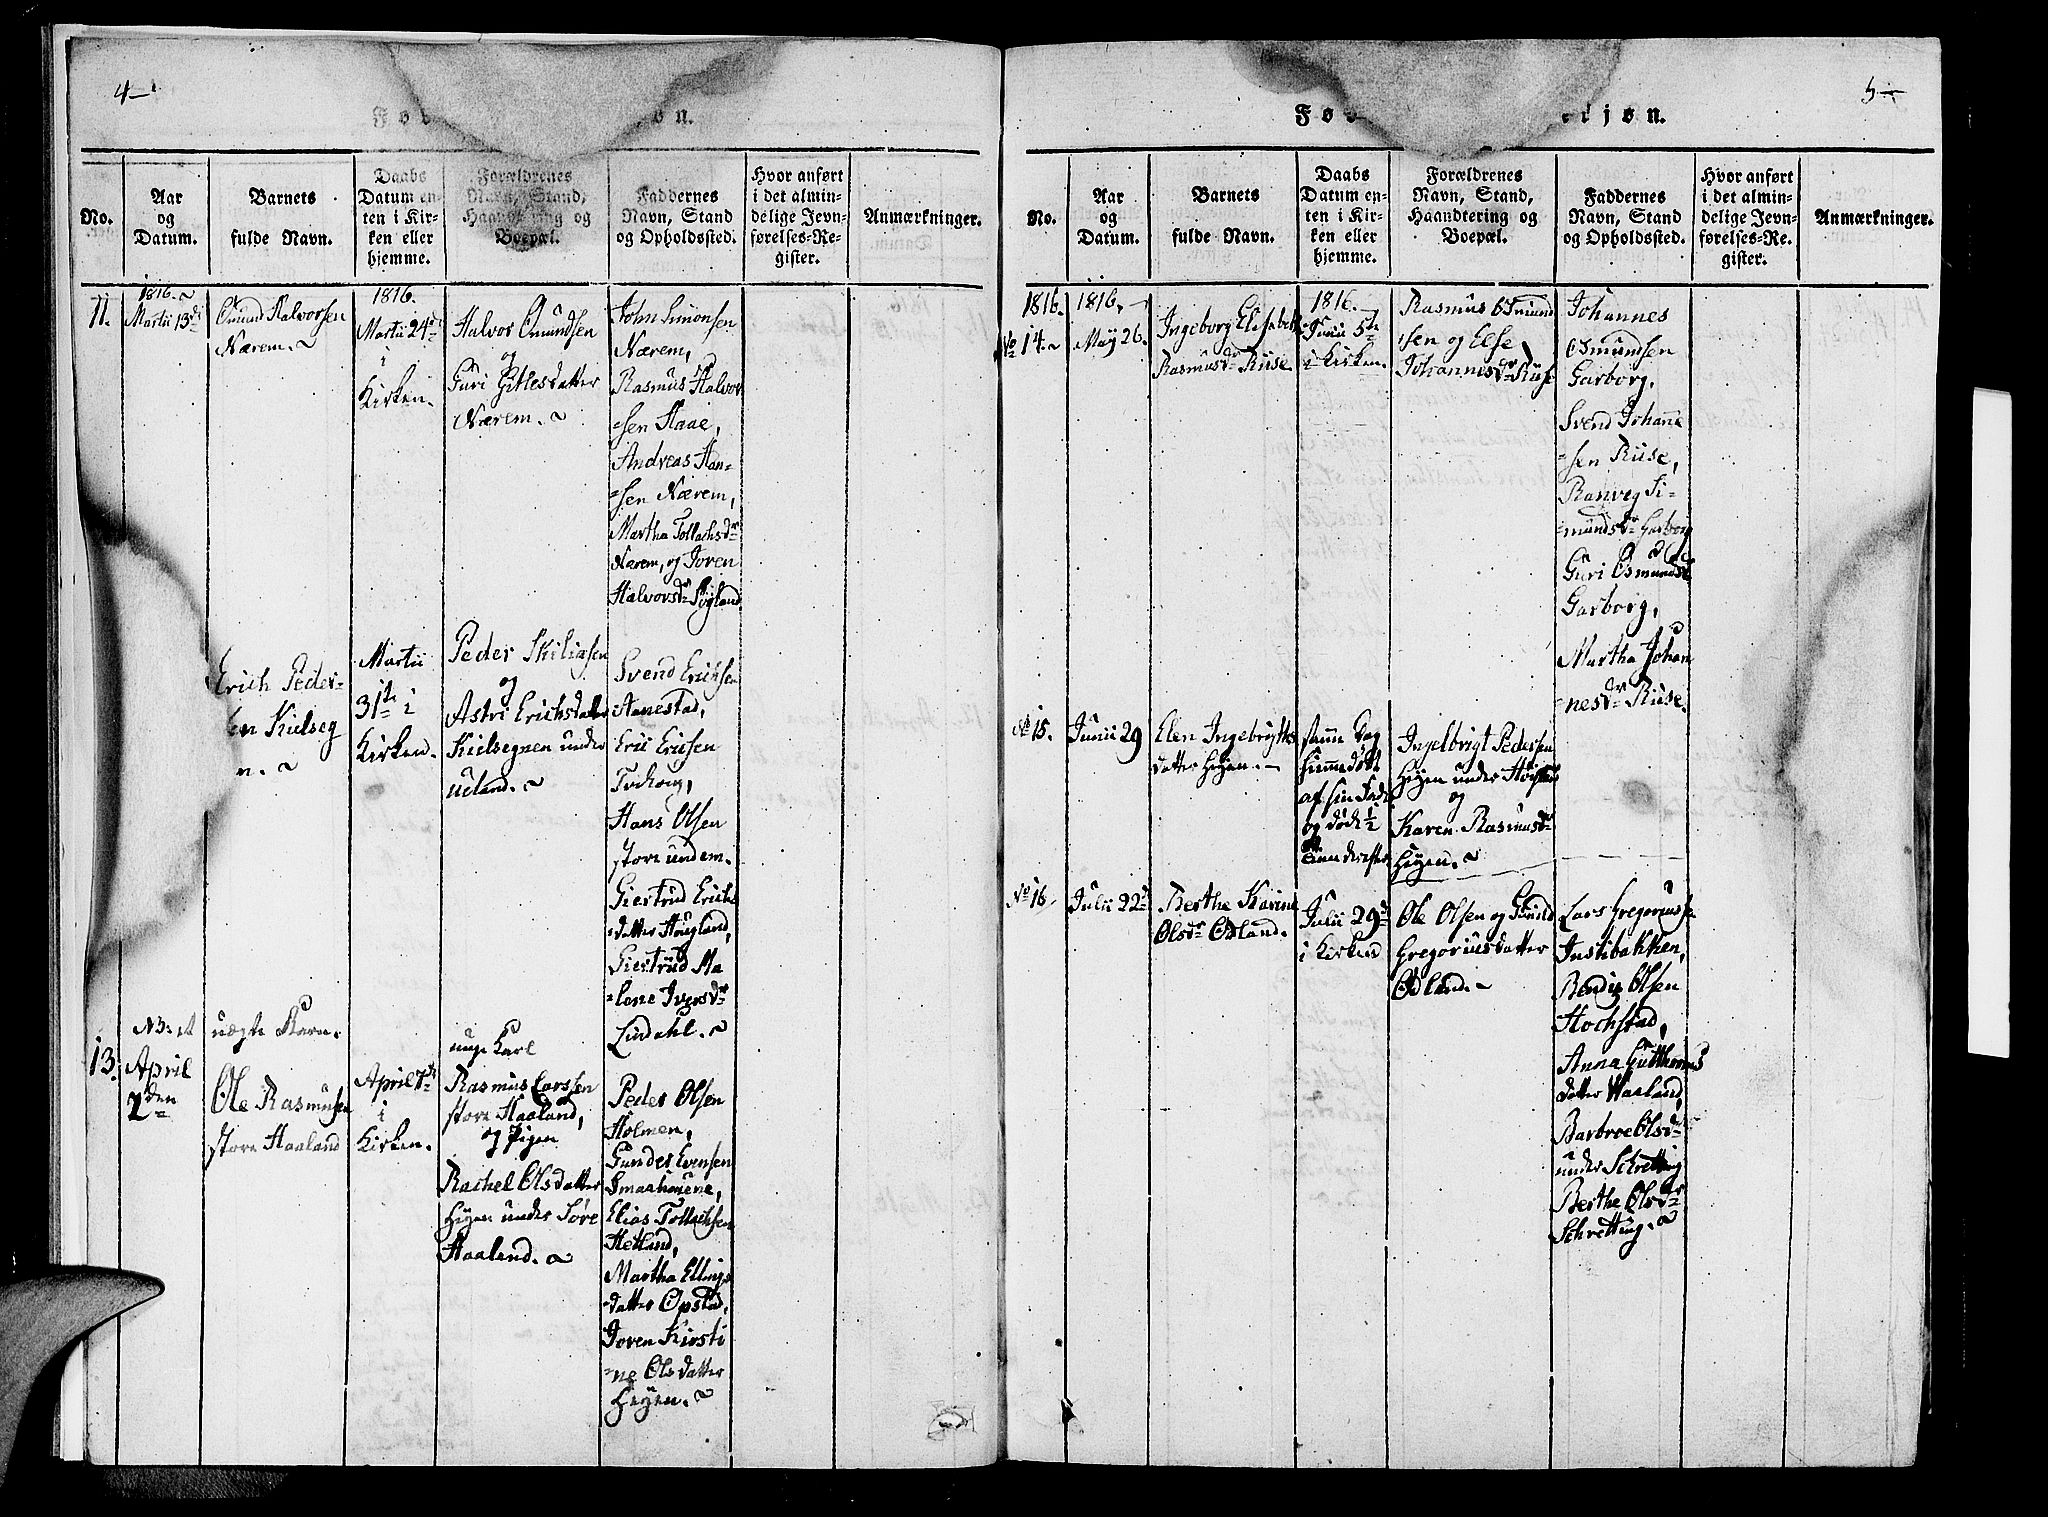 4
No.
Aar
og
Datum.
Barnets
fulde Navn.
Daabs
Datum en-
ten i Kir-
ken eller
hjemme.
Forældrenes
Navn, Stand,
og
Boepæl.
Faddernes
Navn, Stand
og Opholdssted.
Hvor anført
i det almin-
delige Jevn-
førelses-Re-
gister.
Anmærkninger.
11.
1816.
Martii 13de
Omund Halvorsen
Nærem.
1816.
Martii 24de
i
Kirken.
Halvor Omundsen
og
Guri Gitlesdatter
Nærem.
John Simonsen
Nærem,
Rasmus Halvor
-sen Haae,
Andreas Han-
-sen Nærem,
Martha Tollachsdr
Nærem, og Joren
Halvorsdr
Erich Peder-
-sen
Martii
31te i
Kirken.
Peder
og
Astri Erichsdatter
under
Ueland.
Svend Erichsen
Aanestad,
Eric Ericsen
Hans Olsen
store undem.
Giertrud Erichs
-datter Hougland,
Giertrud Ma
-lene Iversdr
Lindahl.
NB: et
uægte Barn.
13.
April
2den
Ole Rasmusen
store Haaland
April 7de
i
Kirken.
unge Karl
Rasmus Larssen
store Haaland,
og Pigen
Rachel Olsdatter
Høyen under Søre
Haaland.
Peder Olsen
Holmen,
Gunder Evensen
Smaahouene,
Elias Tollachsen
Hetland,
Martha Ellings
-datter Opstad,
Joren Kirsti
-ne Olsdatter
Høyen.
5
No.
Aar
og
Datum.
Barnets
fulde Navn.
Daabs
Datum en-
ten i Kir-
ken eller
hjemme.
Forældrenes
Navn, Stand,
Haandtering og
Boepæl.
Faddernes
Navn, Stand
og Opholdssted.
Hvor anført
i det almin-
delige Jevn-
førelses-Re-
gister.
Anmærkninger.
1816.
No 14.
1816.
May 26.
Ingeborg Elisabeth
Rasmusdr Riise
1816.
Junii 5te
i Kirken.
Rasmus Osmund
-sen og Else
Johannesdr Riise
Johannes
Osmundsen
Garborg,
Svend Johanne
-sen Riise,
Ranveg Si-
-mundsdr Garborg
Guri Osmundsdr
Garborg,
Martha Johan
-nesdr Riise.
No 15.
Junii 29
Elen Ingebrigts
datter Høyen.
samme Dag
hiemmedøbt
af sin Fader
og døde 1/2
Ingelbrigt Pedersen
Høyen under
og
Karen Rasmusdr
Høyen.
No 16
Julii 22de
Berthe Karine
Olsdr Ødland.
Julii 29de
i Kirken
Ole Olsen og Gunild
Gregoriusdatter
Ødland.
Lars Gregoriussen
Instibakken,
Bendix Olsen
Hochstad,
Anna Gutthorms
datter Waaland,
Barbroe Olsdr
under Schretting
Berthe Olsdr
Schretting.